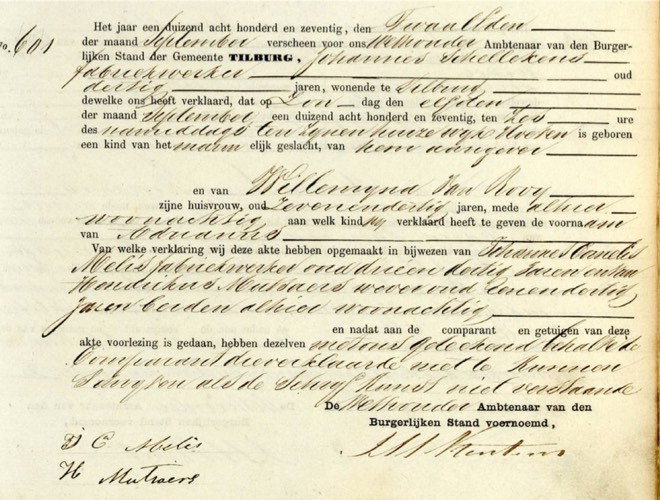 Het jaar een duizend acht honderd en zeventig, den Twaalfden
no. 601 der maand September verscheen voor ons Wethouder Ambtenaar van den Burger-
lijken Stand der Gemeente TILBURG, Johannes Schellekens
fabriekwerker oud
dertig jaren, wonende te Tilburg
dewelke ons heeft verklaard, dat op Zon dag den elfden
der maand September een duizend acht honderd en zeventig, ten Zes ure
des namiddags ten zijnen huize wijk Hoeven is geboren
een kind van het mann elijk geslacht, van hem aangever
en van Willemyna Van Rooy
zijne huisvrouw, oud Zevenendertig jaren, mede alhier
woonachtig aan welk kind hij verklaard heeft te geven de voornaam
van Adrianus
Van welke verklaring wij deze akte hebben opgemaakt in bijwezen van Johannes Cornelis
Melis fabriekwerker oud drieen dertig Jaren en van
Hendrikus Mutsaers wever oud eenendertig
Jaren beiden alhier woonachtig
en nadat aan de comparant en getuigen van deze
akte voorlezing is gedaan, hebben dezelven met ons geteekend behalve de
Comparant die verklaarde niet te kunnen
als de Schrijfkunst niet verstaande
De Wethouder Ambtenaar van den
Burgerlijken Stand voornoemd,
J C Melis
H Mutsaers